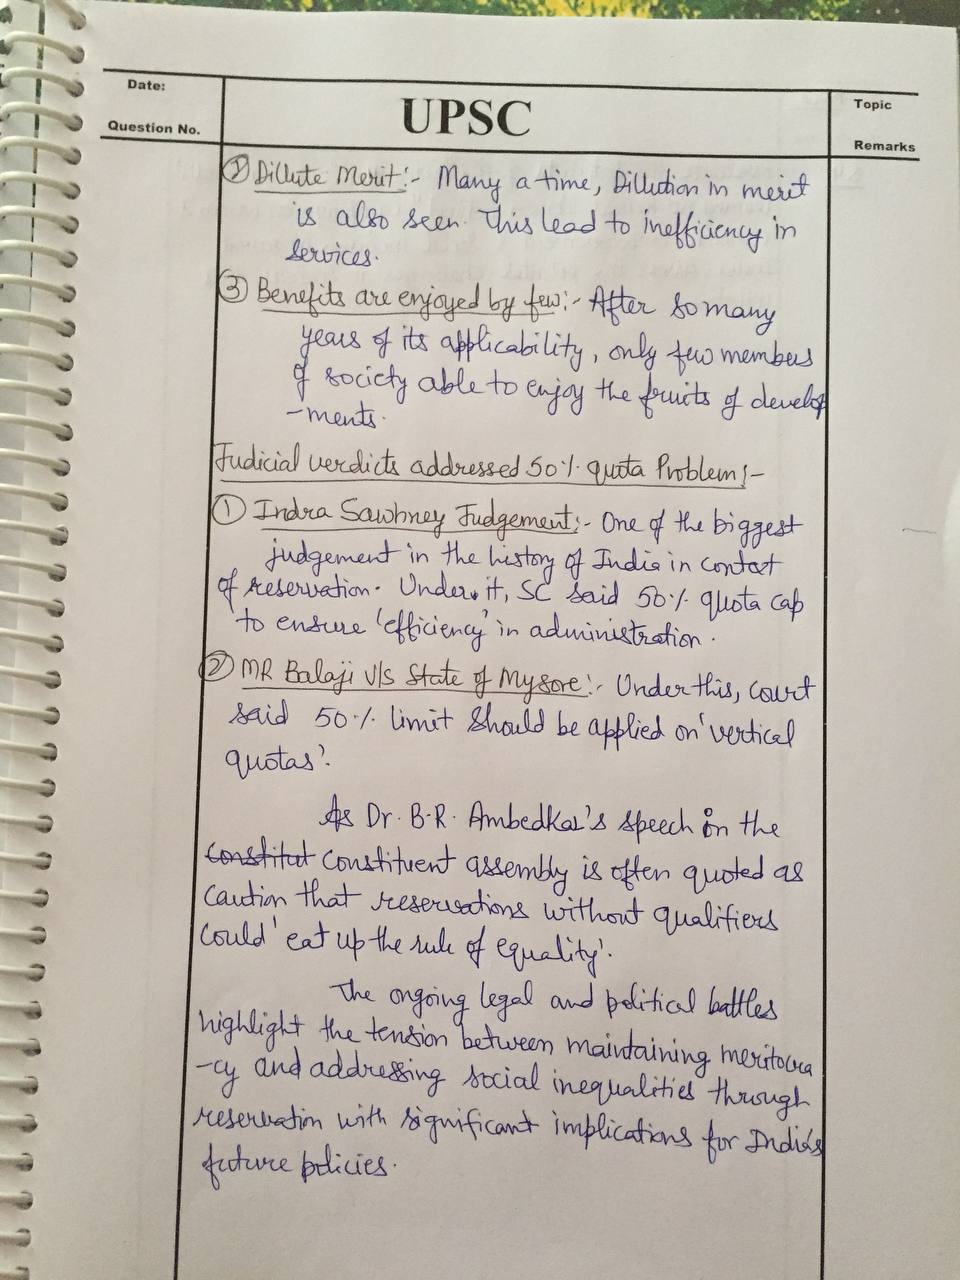 Date:
Question No.
UPSC
Topic
Remarks
② Dillute Merit:- Many a time, Dillution in merit
is also seen. This lead to inefficiency in
services.
③ Benefits are enjoyed by few:- After so many
years of its applicability, only few members
of society able to enjoy the fruits of develop
-ments.
Judicial verdicts addressed 50% quota Problem:-
① Indra Sawhney Judgement:- One of the biggest
judgement in the history of India in contect
of reservation. Under it, SC said 50% quota cap
to ensure 'efficiency' in administration.
② MR Balaji v/s State of Mysore:- Under this, court
said 50% limit should be applied on 'vertical
quotas'.
As Dr. B.R. Ambedkar's speech in the
constitut constituent assembly is often quoted as
caution that reservations without qualifiers
could 'eat up the rule of equality'.
The ongoing legal and political battles
highlight the tension between maintaining meritocra
-cy and addressing social inequalities through
reservation with significant implications for India's
future policies.